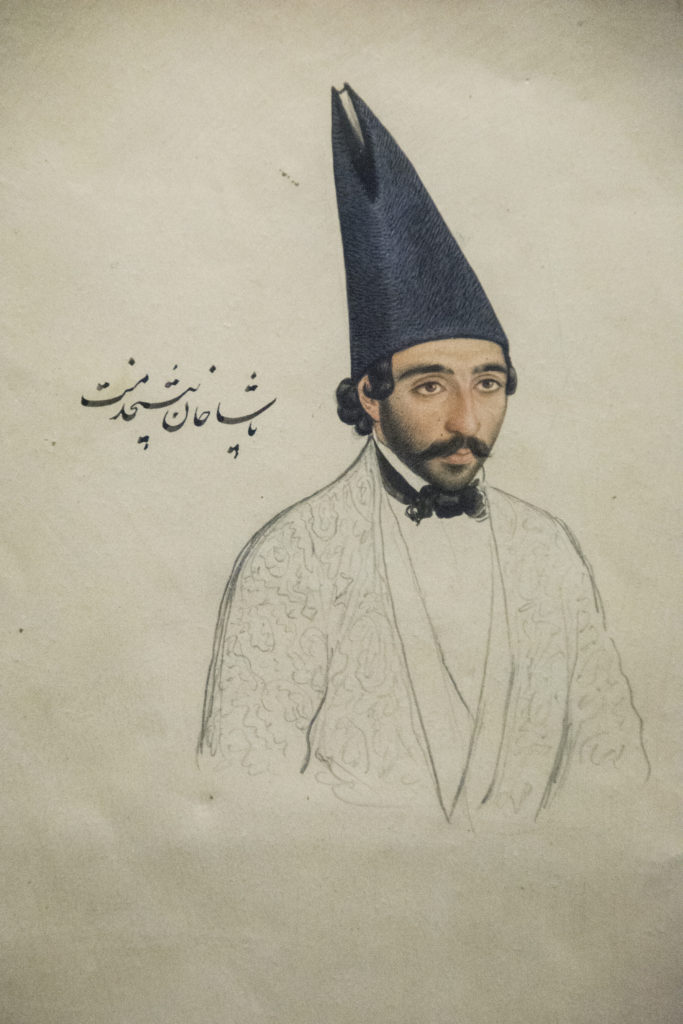 پاشا خان پیشخدمت